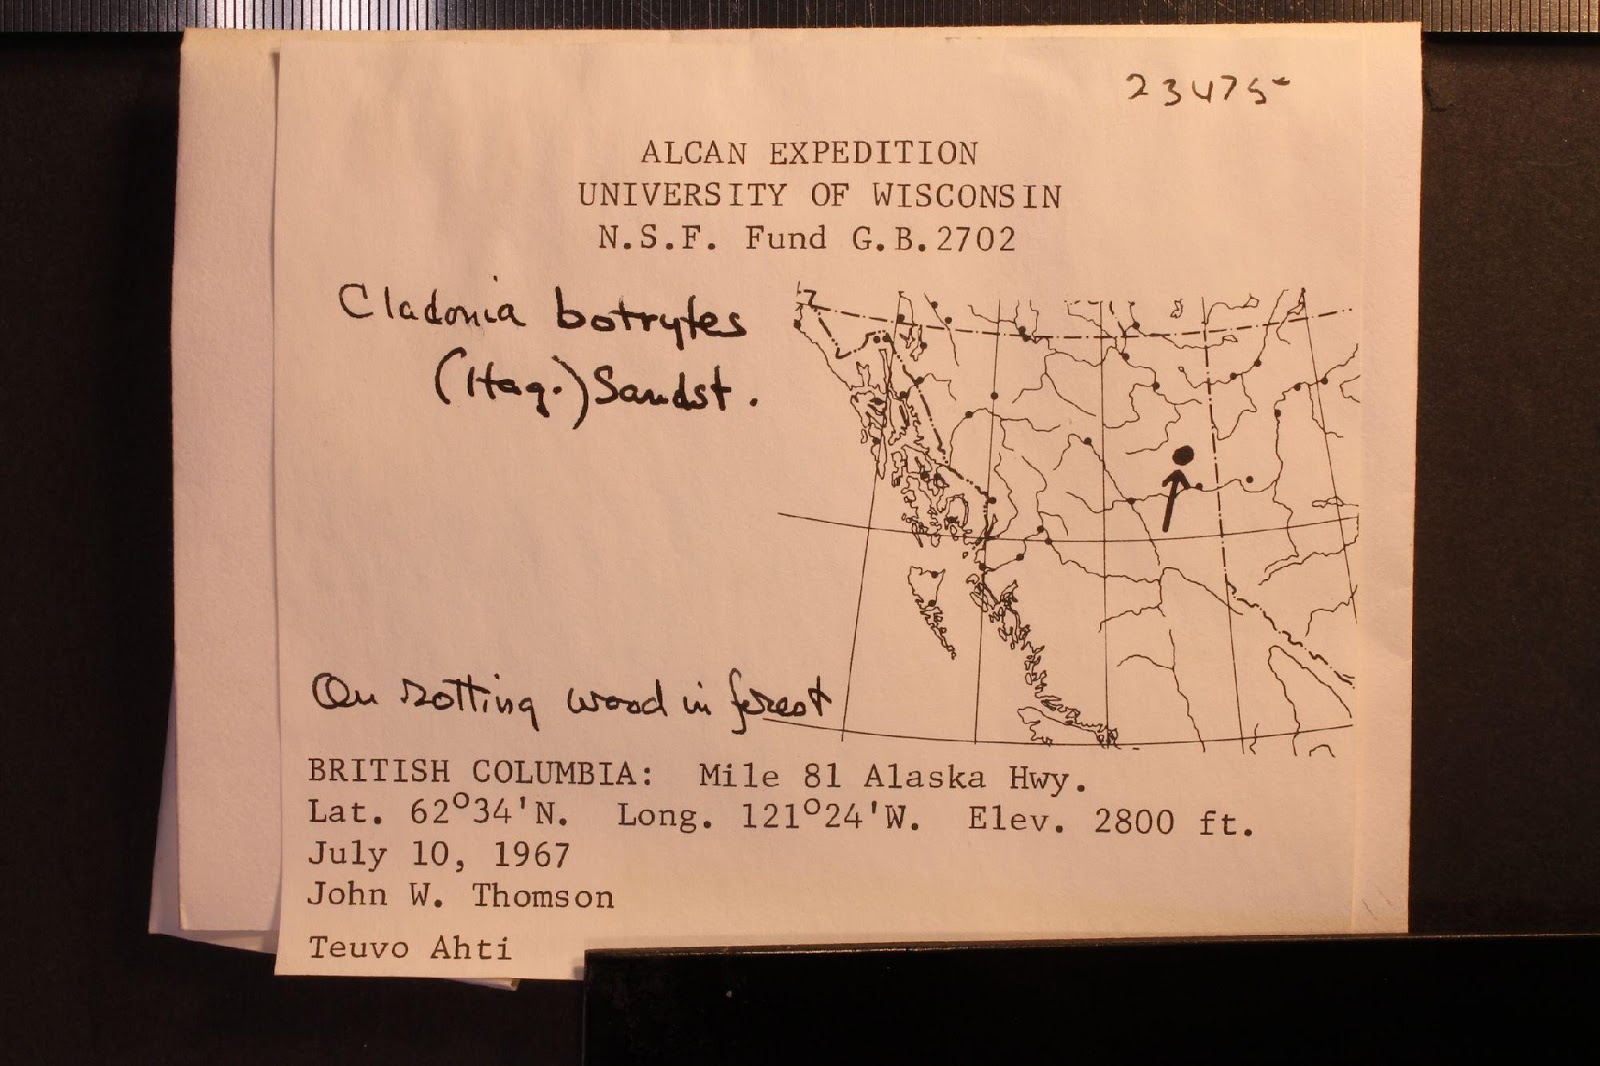 23475
ALCAN EXPEDITION
UNIVERSITY OF WISCONSIN
N.S.F. Fund G.B.2702
Cladonia botrytes
(Hag.) Sandst.
On rotting wood in forest
BRITISH COLUMBIA: Mile 81 Alaska Hwy.
Lat. 62°34'N. Long. 121°24'W. Elev. 2800 ft.
July 10, 1967
John W. Thomson
Teuvo Ahti